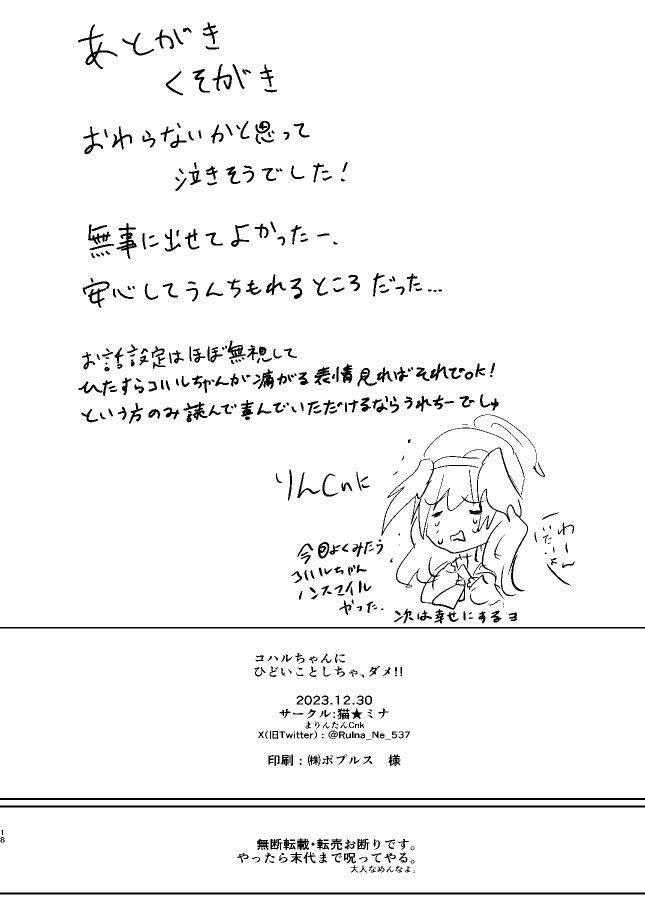 あとがき
くそがき
おわらないかと思って
泣きそうでした!
無事に出せてよかったー、
安心してうんちもれるところだった...
お話設定はほぼ無視して
ひたすらコハルちゃんが痛がる表情見ればそれでok!
という方のみ読んで喜んでいただけるならうれちーでしゅ
りんCnに
わーん
いたいよぉ
今回よくみたら
コハルちゃん
ノンスマイル
やった.
次は幸せにするヨ
コハルちゃんに
ひどいことしちゃ、ダメ!!
2023.12.30
サークル:猫★ミナ
まりんたんCnk
X(旧Twitter):@RuIna_Ne_537
印刷:㈱ポプルス 様
18
無断転載・転売お断りです。
やったら末代まで呪ってやる。
大人なめんなよ」